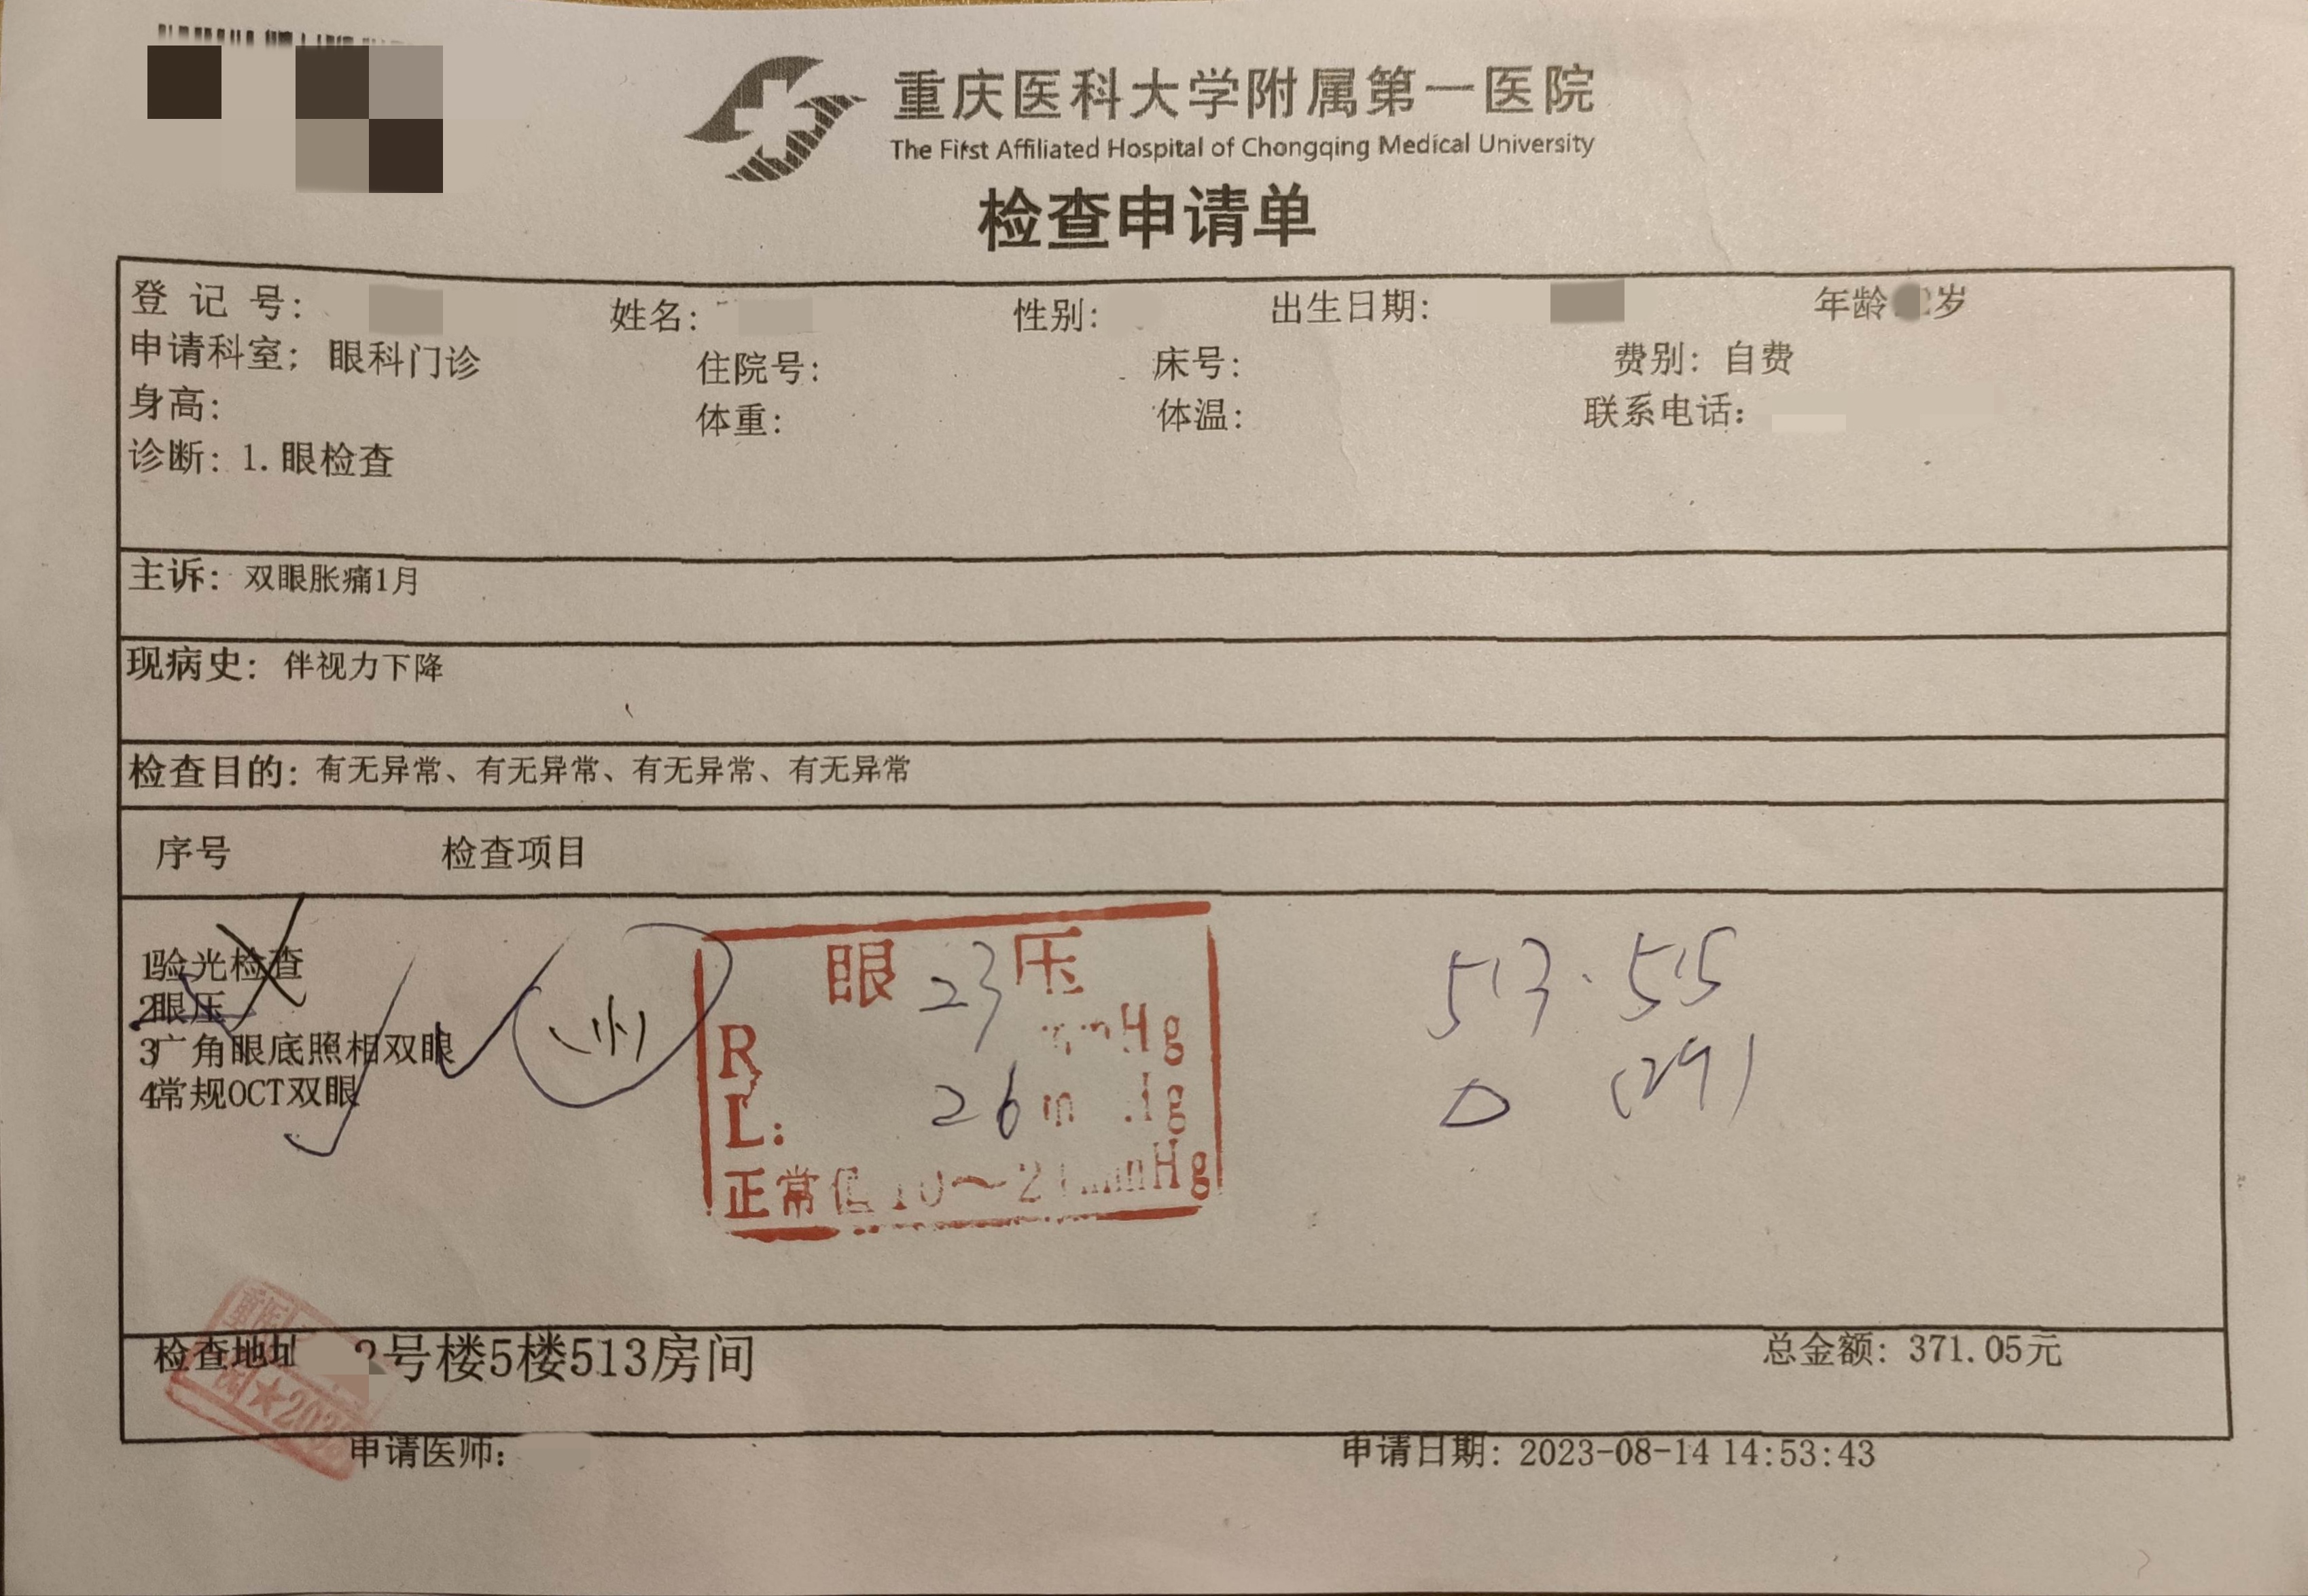 重庆医科大学附属第一医院
The First Affiliated Hospital of Chongqing Medical University
检查申请单
登记号： 姓名： 性别： 出生日期： 年龄 岁
申请科室：眼科门诊 住院号： 床号： 费别：自费
身高： 体重： 体温： 联系电话：
诊断：1.眼检查
主诉：双眼胀痛1月
现病史：伴视力下降
检查目的：有无异常、有无异常、有无异常、有无异常
序号 检查项目
1验光检查
2眼压
3广角眼底照相双眼
4常规OCT双眼
眼压
R 23 mmHg
L: 26 mmHg
正常值10～21mmHg
513. 515
(29)
检查地址 2号楼5楼513房间 总金额：371.05元
申请医师： 申请日期：2023-08-14 14:53:43